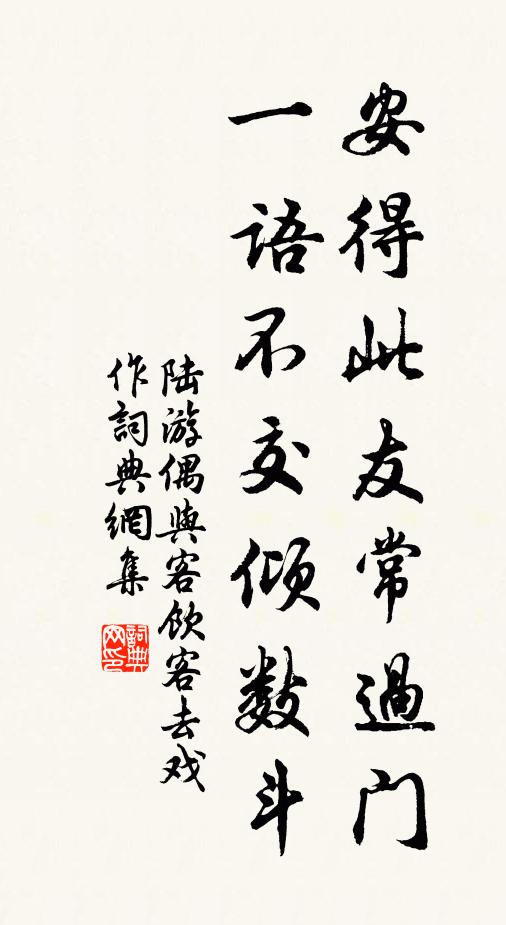 安得此友常過门
一语不交倾数斗
陆游偶與客飲客去戏
作詞典網集
詞典网印